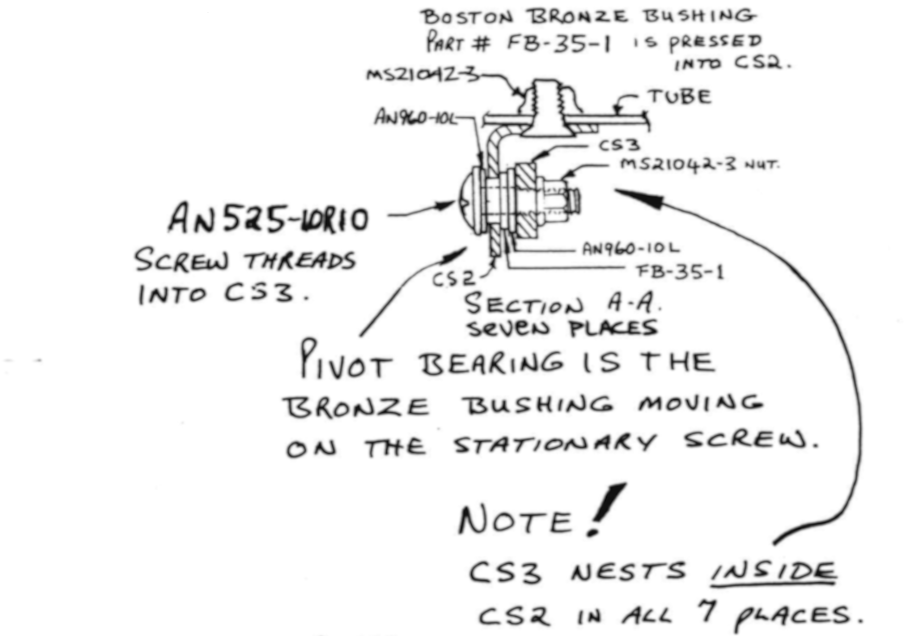 BOSTON BRONZE BUSHING
PART # FB-35-1 IS PRESSED
INTO CS2.
MS21042-3
TUBE
AN960-10L
CS3
MS21042-3 NUT.
AN525-10R10
SCREW THREADS
INTO CS3.
AN960-10L
FB-35-1
CS2
SECTION A-A.
SEVEN PLACES
PIVOT BEARING IS THE
BRONZE BUSHING MOVING
ON THE STATIONARY SCREW.
NOTE!
CS3 NESTS INSIDE
CS2 IN ALL 7 PLACES.